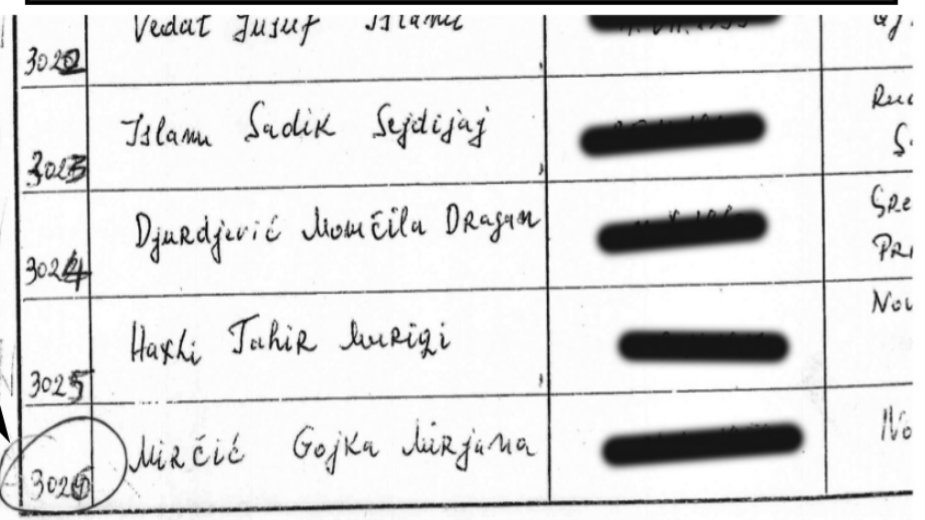 3022 Vedat Jusuf Islami
3023 Islam Sadik Sejdijaj
3024 Djurdjević Momčila Dragan
3025 Haxhi Tahir Muriqi
3026 Mirčić Gojka Mirjana